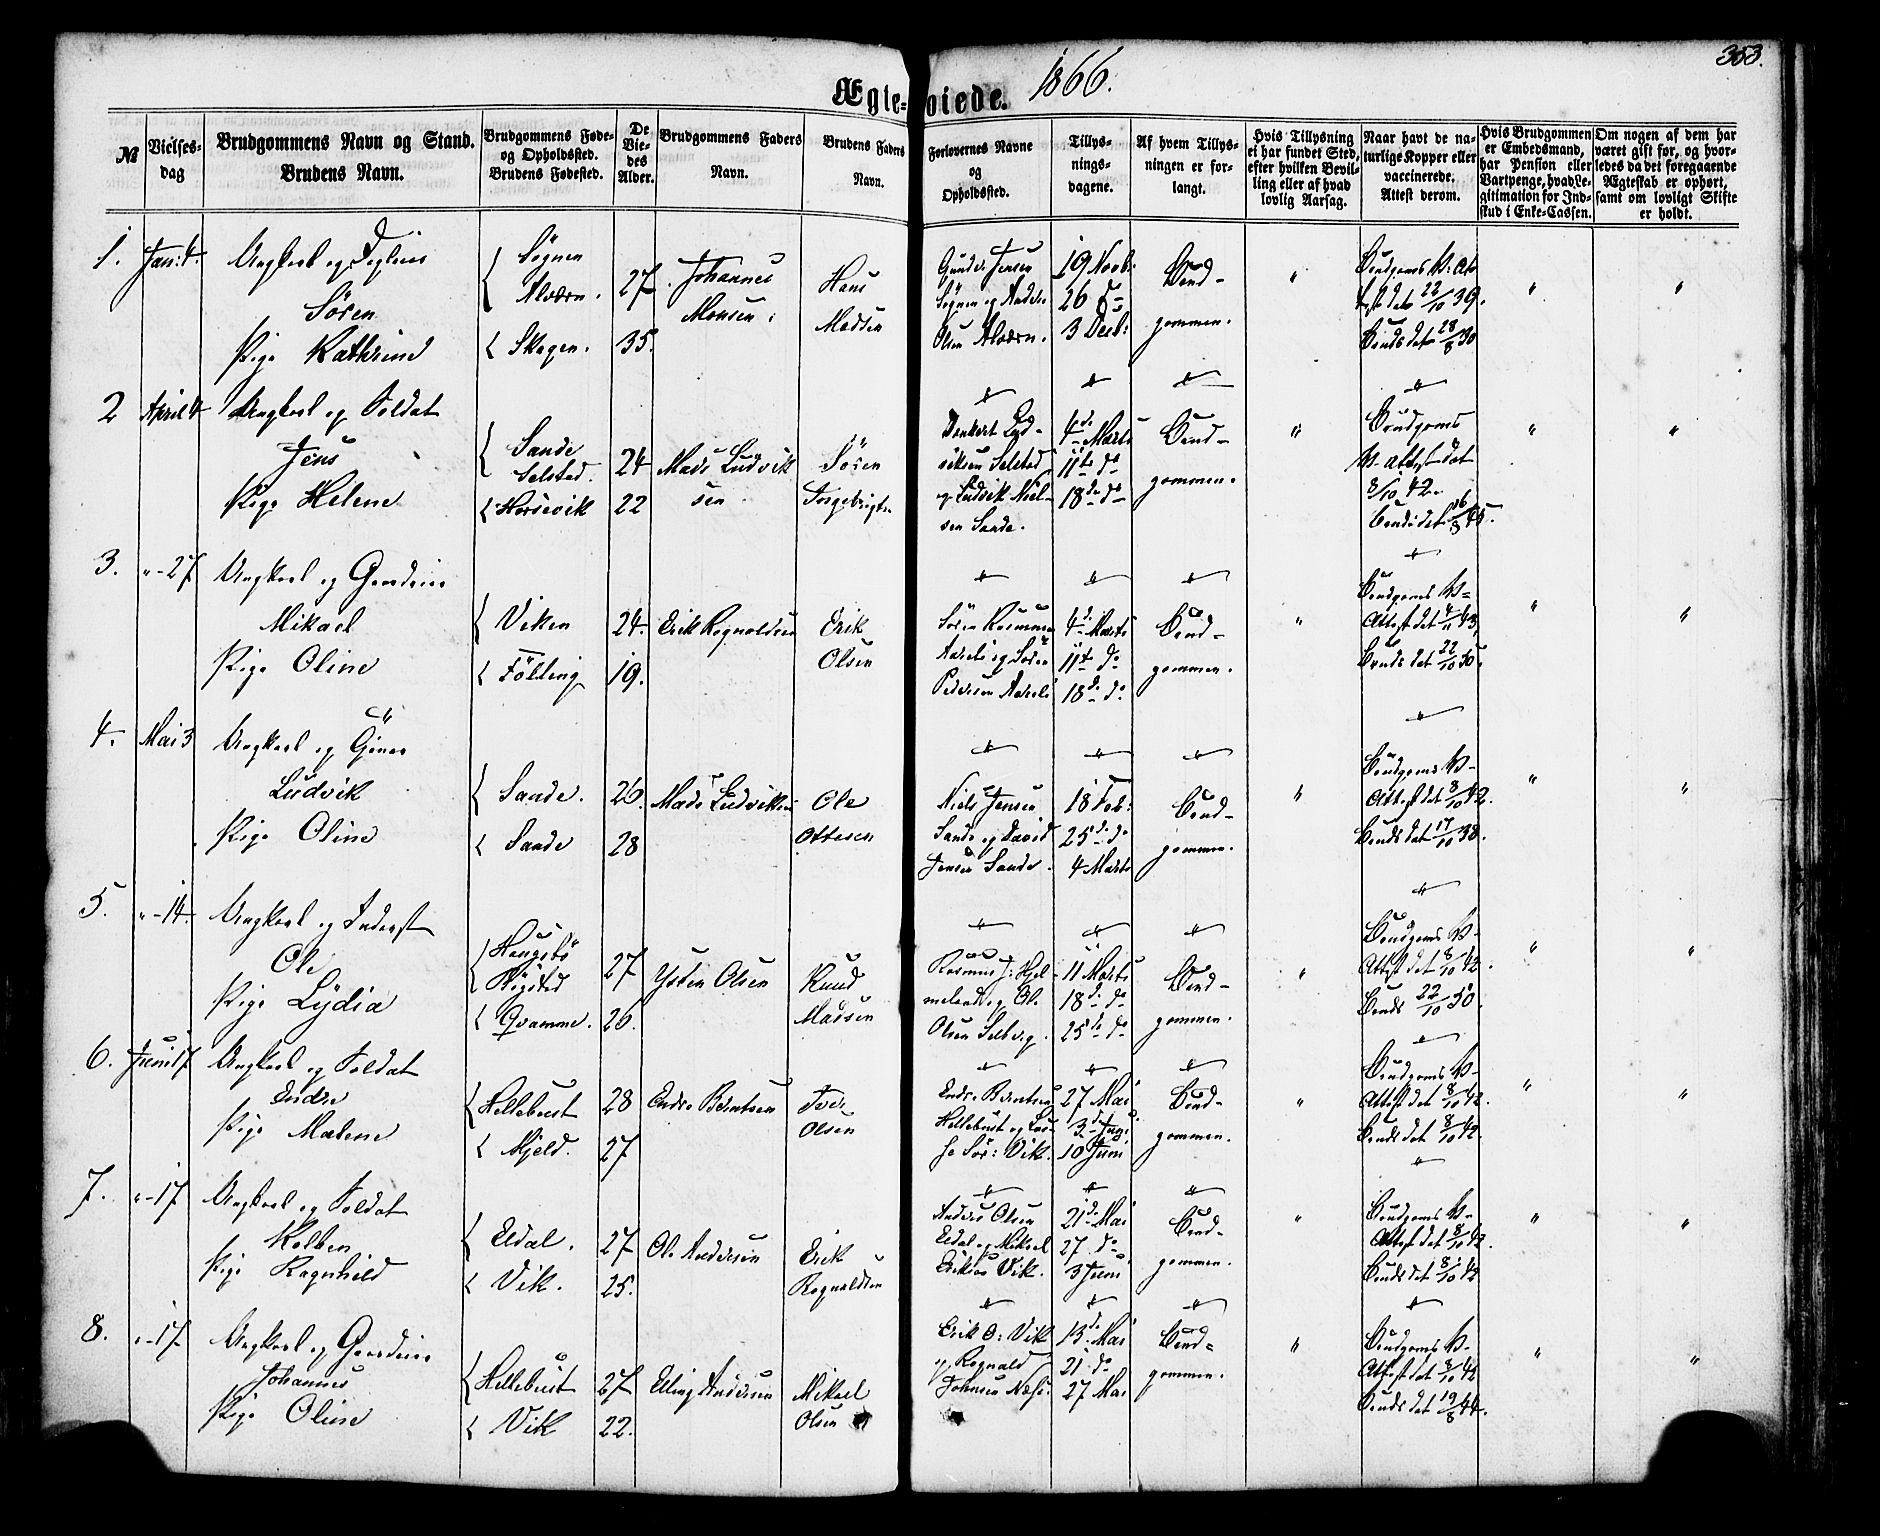 353.
Ægte-viede. 1866.
№
Vielses-dag
Brudgommens Navn og Stand. Brudens Navn.
Brudgommens Føde- og Opholdssted. Brudens Fødested.
De Vie-des Alder.
Brudgommens Faders Navn.
Brudens Faders Navn.
Forlovernes Navne og Opholdssted.
Tillys-nings-dagene.
Af hvem Tillys-ningen er for-langt.
Hvis Tillysning ei har fundet Sted, efter hvilken Bevil-ling eller af hvad lovlig Aarsag.
Naar havt de na-turlige Kopper eller vaccinerede. Attest derom.
Hvis Brudgommen er Embedsmand, har Pension eller Vartpenge, hvad Le-gitimation for Ind-skud i Enke-Cassen.
Om nogen af dem har været gift før, og hvor-ledes da det foregaaende Ægteskab er ophørt, samt om lovligt Skifte er holdt.
1. Jan: 4. Ungkarl og
Søren
Pige Kathrine
Sögnen
Alværn.
Skagen.
27.
35.
Johannes
Monsen.
Hans
Madsen
Jensen
Sögnen og Anders
Olsen Alværn.
19 Novb:
26 do
3 Decb:
Brud-
gommen.
"
Brudgoms V: At-
test dat 22/10 39.
Bruds dat 28/8 30
"
"
2 April 4 Ungkarl og Soldat
Jens
Pige Helene
Sande
Selsted.
Horsevik
24
22
Mads Ludvik
sen
Søren
Torgebrigts
Lud-
viksen Selsted
og Ludvik Niel-
sen Sande.
4de Marts
11te do
18de do
Brud-
gommen.
"
Brudgoms
V- Attest dat
8/10 42.
Bruds dat 16/8 45.
"
"
3. "-27 Ungkarl og Gaardmd
Mikael
Pige Oline
Viken
Fölling
24.
19.
Erik Rognaldsen
Erik
Olsen
Sören Rasmussen
og Sören
Pedersen
4de Marts
11te do
18de do
Brud-
gommen.
"
Brudgoms V-
Attest dat 4/11 43,
Bruds dat 22/10 50.
"
"
4. Mai 3 Ungkarl og
Ludvik
Pige Oline
Sande.
Sande
26.
28
Mads Ludviksen
Ole
Ottesen
Niels Jensen
Sande og David
Jensen Sande.
18 Feb:
25de do
4 Marts
Brud-
gommen.
"
Brudgoms V-
Attest dat 8/10 42.
Bruds dat 17/10 38.
"
"
5. "-14. Ungkarl og Inderst
Ole
Pige Lydia
Haugsbö
Rögsted
Qvamme.
27
26.
Ysten Olsen
Knud
Madsen
Rasmus J: Hjel-
meland og Ole
Olsen Selberg.
11 Marts
18de do
25de do
Brud-
gommen.
"
Brudgoms V-
Attest dat 8/10 42.
Bruds 22/10 50.
"
"
6. Juni 17 Ungkarl og Soldat
Endre
Pige Malene
Hellebust
Mjeld.
28
27
Endre Berntsen
Iver
Olsen
Endre Berntsen
Hellebust og
Sör: Vik.
27 Mai
3de Juni
10 Juni
Brud-
gommen.
"
Brudgoms V-
Attest dat 8/10 42.
Bruds dat 8/10 42.
"
"
7. "-17 Ungkarl og Soldat
Kolben
Pige Ragnhild
Eldal.
Vik.
27
25.
Ole Andersen
Erik
Rognaldsen
Anders Olsen
Eldal og Mikael
Eriksen Vik.
21de Mai
27 do
3 Juni
Brud-
gommen.
"
Brudgoms V-
Attest dat 8/10 42.
Bruds dat 8/10 42
"
"
8. "-17. Ungkarl og Gaardmd
Johannes
Pige Oline
Hellebust
Vik
27
22.
Elling Andersen
Mikael
Olsen
Erik O: Vik
og Rognald
Johnsen Næse.
13de Mai
21 do
27 Mai
Brud-
gommen.
"
Brudgoms V-
Attest dat 8/10 42
Bruds dat 19/8 44.
"
"